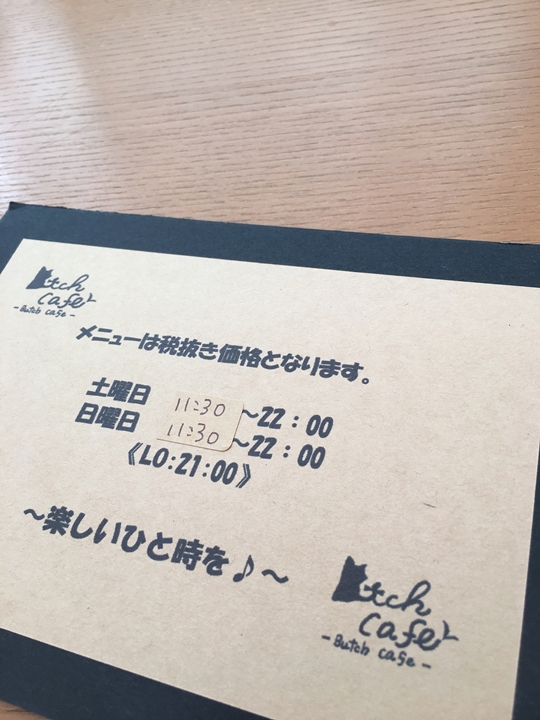 Butch
Cafe
- Butch cafe -
メニューは税抜き価格となります。
土曜日 11:30 〜22:00
日曜日 11:30 〜22:00
《LO:21:00》
〜楽しいひと時を♪〜
Butch
Cafe
- Butch cafe -